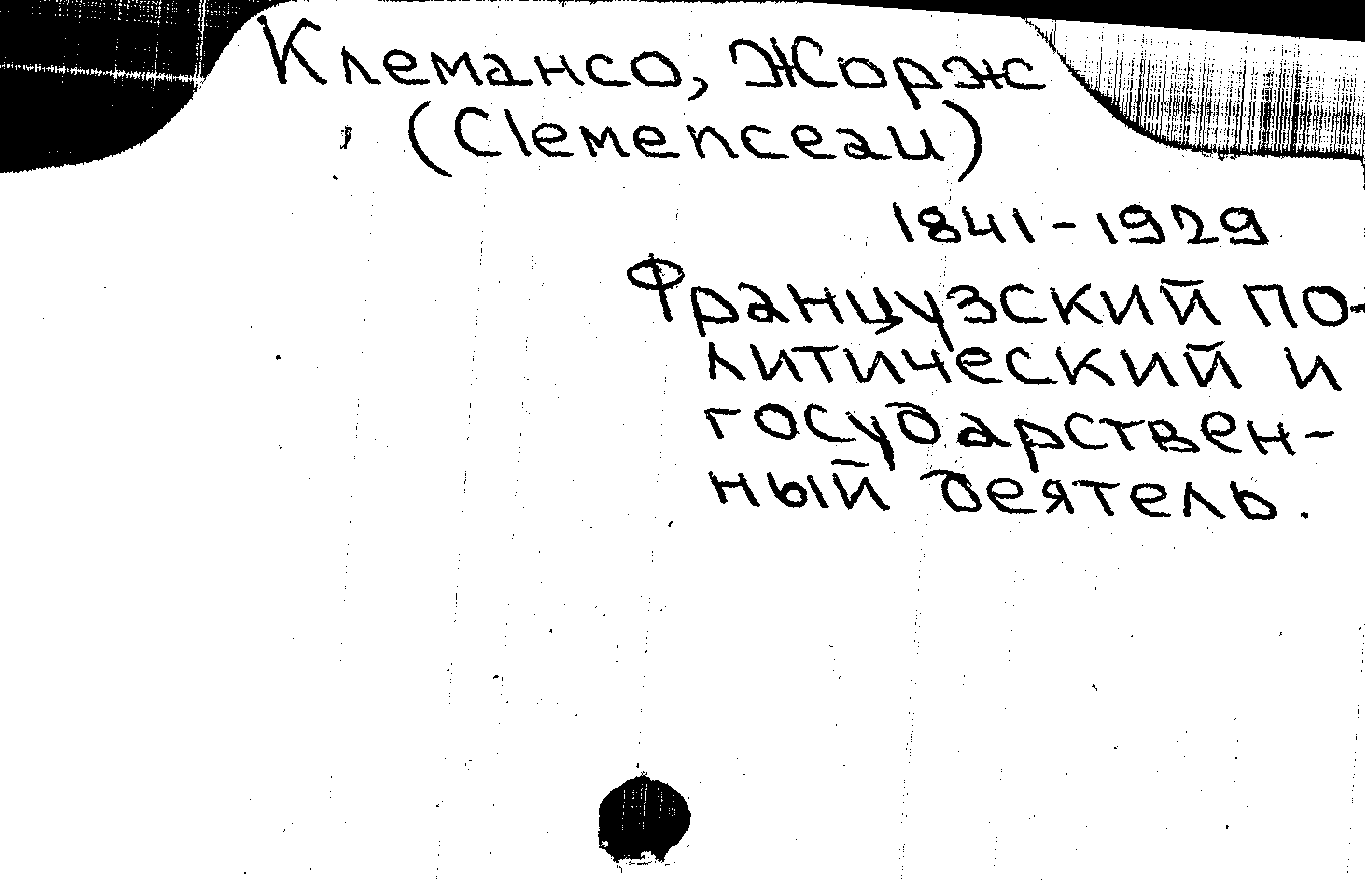 Клемансо, Жорж
(Clemenceau)
1841-1929
Французский по-
литический и
государствен-
ный деятель.